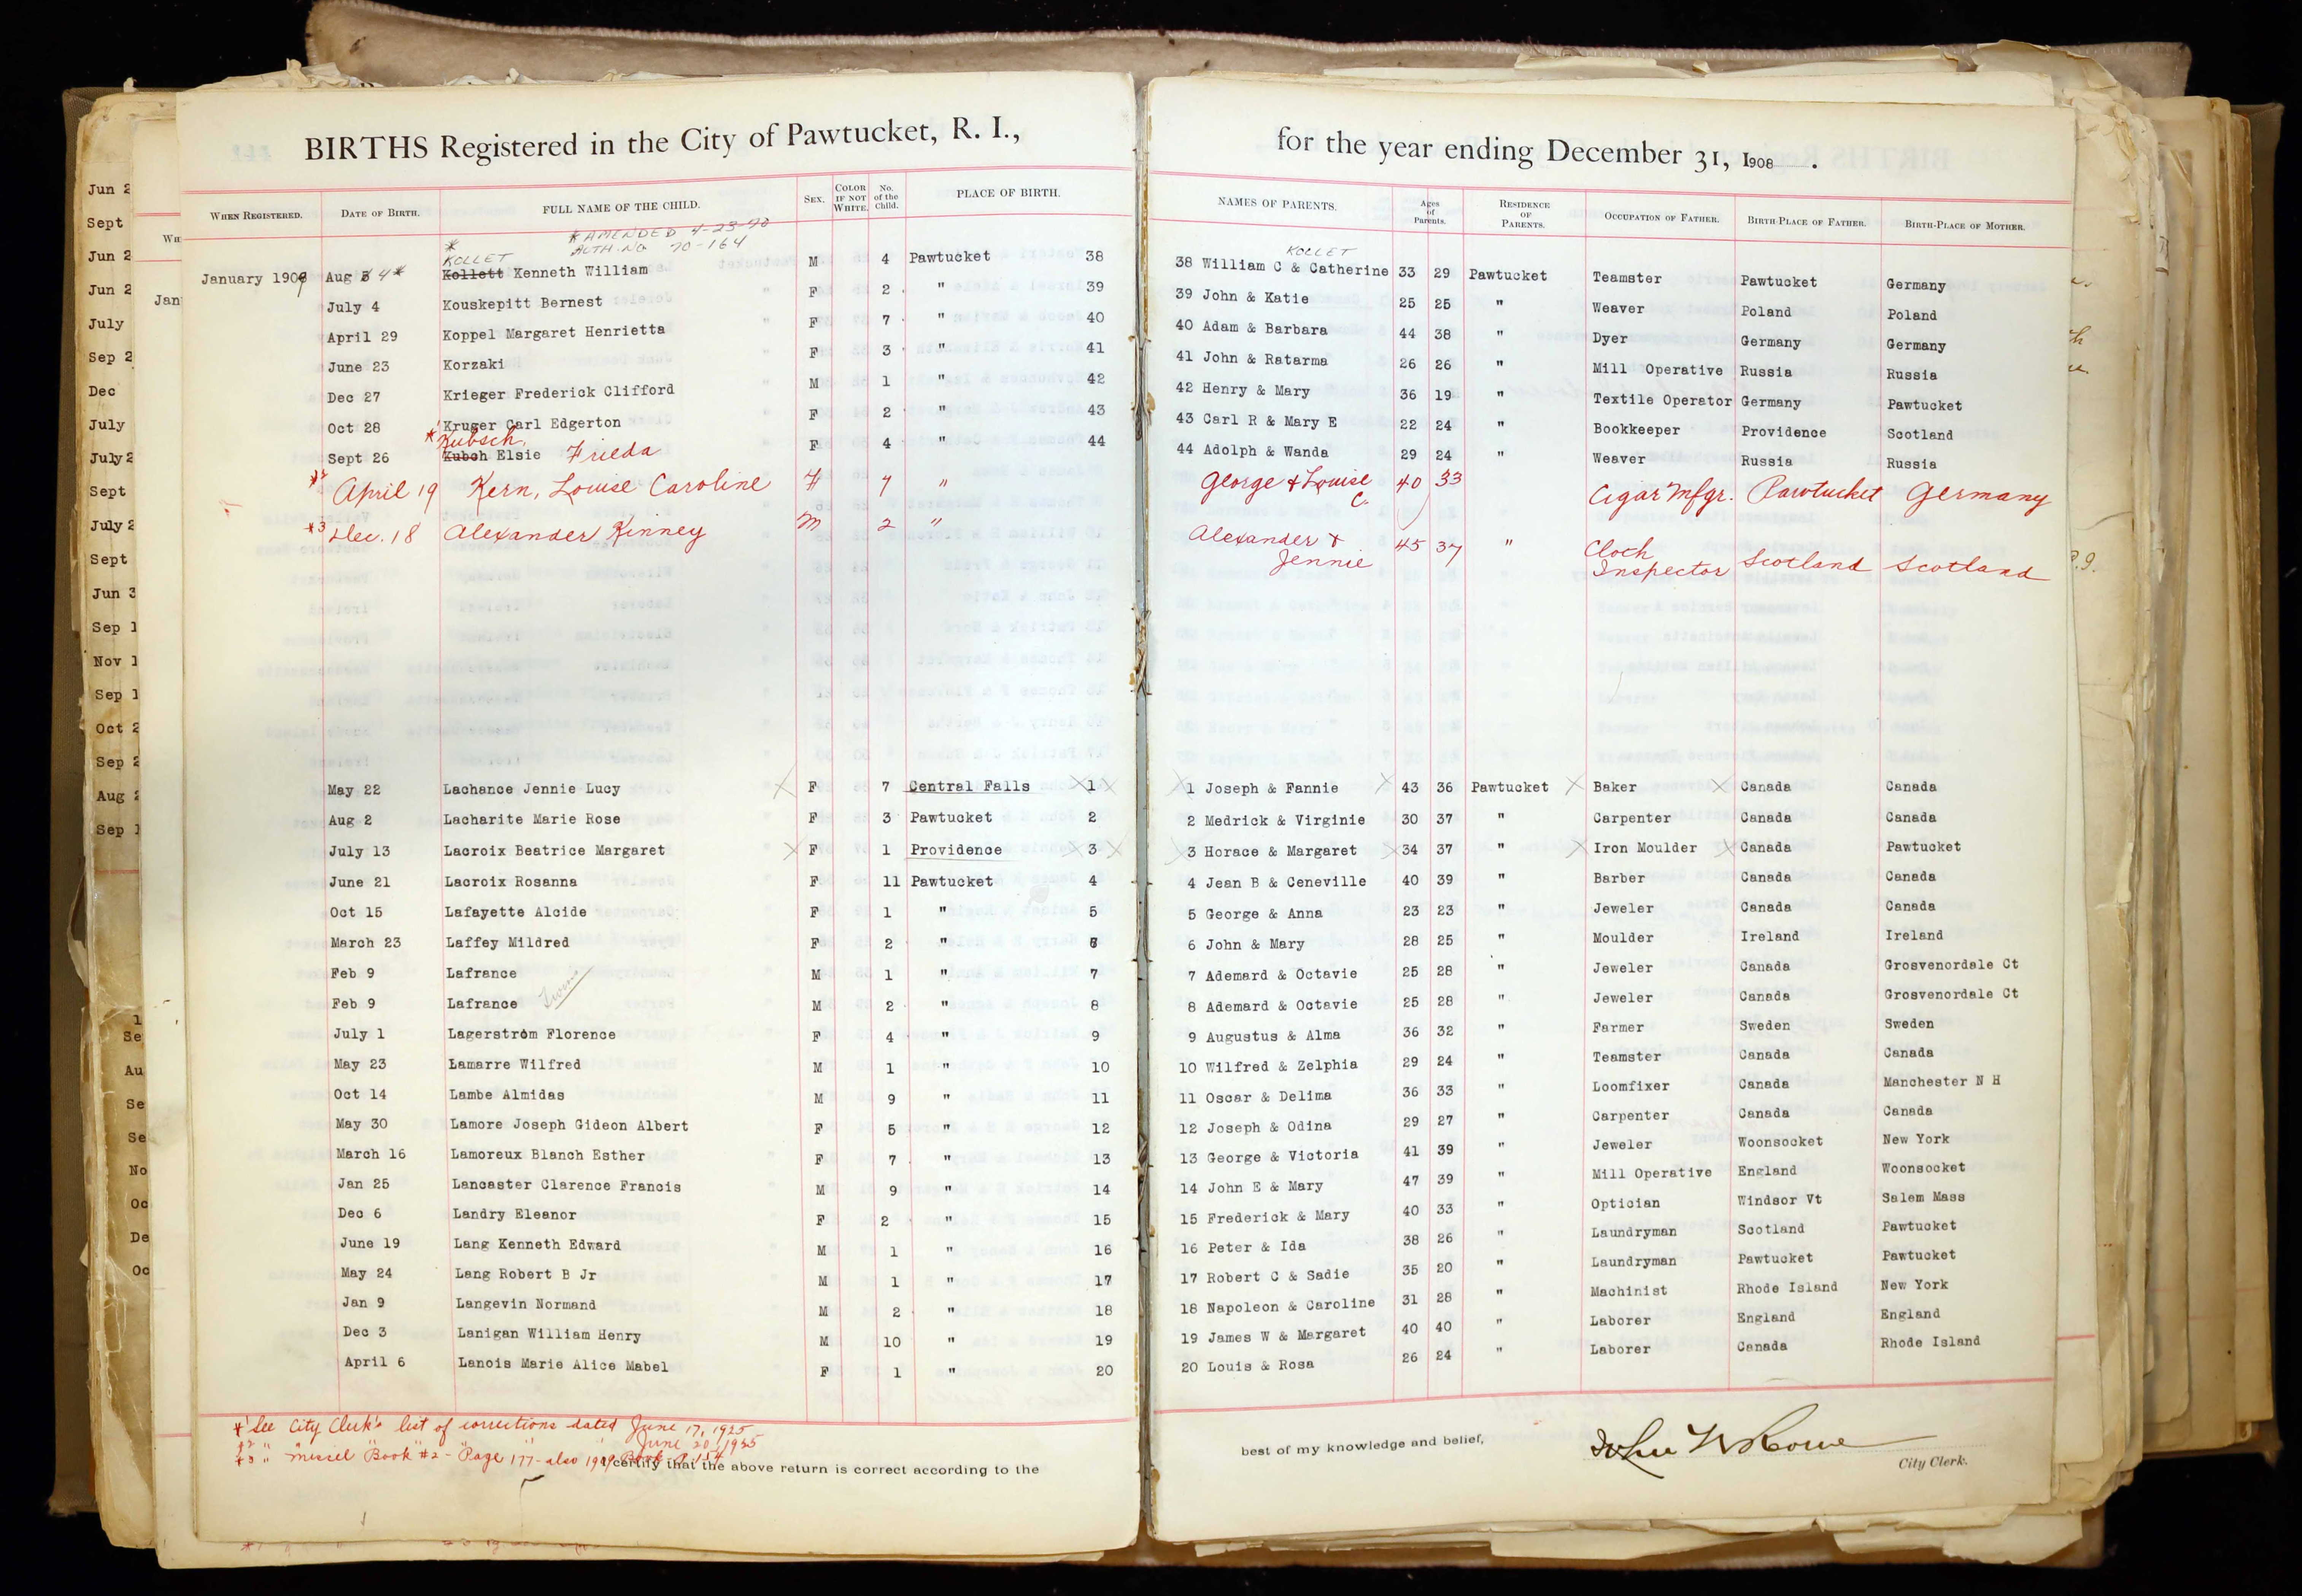 BIRTHS Registered in the City of Pawtucket, R. I., for the year ending December 31, 1908.
WHEN REGISTERED. DATE OF BIRTH. FULL NAME OF THE CHILD. SEX. COLOR IF NOT WHITE. No. of the Child. PLACE OF BIRTH. NAMES OF PARENTS. Ages of Parents. RESIDENCE OF PARENTS. OCCUPATION OF FATHER. BIRTH-PLACE OF FATHER. BIRTH-PLACE OF MOTHER.
* AMENDED 4-23-70
* AUTH. NO 70-164
KOLLET KOLLET
January 1909 Aug 4* Kollett Kenneth William M 4 Pawtucket 38 38 William C & Catherine 33 29 Pawtucket Teamster Pawtucket Germany
July 4 Kouskepitt Bernest F 2 " 39 39 John & Katie 25 25 " Weaver Poland Poland
April 29 Koppel Margaret Henrietta F 7 " 40 40 Adam & Barbara 44 38 " Dyer Germany Germany
June 23 Korzaki F 3 " 41 41 John & Ratarma 26 26 " Mill Operative Russia Russia
Dec 27 Krieger Frederick Clifford M 1 " 42 42 Henry & Mary 36 19 " Textile Operator Germany Pawtucket
Oct 28 Kruger Carl Edgerton F 2 " 43 43 Carl R & Mary E 22 24 " Bookkeeper Providence Scotland
*1 Kubsch,
Sept 26 Kubch Elsie Frieda F 4 " 44 44 Adolph & Wanda 29 24 " Weaver Russia Russia
*2 April 19 Kern, Louise Caroline F 7 " George & Louise C. 40 33 Cigar Mfgr. Pawtucket Germany
*3 Dec. 18 Alexander Kinney M 2 " Alexander & Jennie 45 37 " Cloth Inspector Scotland Scotland
May 22 Lachance Jennie Lucy F 7 Central Falls 1 1 Joseph & Fannie 43 36 Pawtucket Baker Canada Canada
Aug 2 Lacharite Marie Rose F 3 Pawtucket 2 2 Medrick & Virginie 30 37 " Carpenter Canada Canada
July 13 Lacroix Beatrice Margaret F 1 Providence 3 3 Horace & Margaret 34 37 " Iron Moulder Canada Pawtucket
June 21 Lacroix Rosanna F 11 Pawtucket 4 4 Jean B & Ceneville 40 39 " Barber Canada Canada
Oct 15 Lafayette Alcide F 1 " 5 5 George & Anna 23 23 " Jeweler Canada Canada
March 23 Laffey Mildred F 2 " 6 6 John & Mary 28 25 " Moulder Ireland Ireland
Feb 9 Lafrance M 1 " 7 7 Ademard & Octavie 25 28 " Jeweler Canada Grosvenordale Ct
Feb 9 Lafrance Twins M 2 " 8 8 Ademard & Octavie 25 28 " Jeweler Canada Grosvenordale Ct
July 1 Lagerstrom Florence F 4 " 9 9 Augustus & Alma 36 32 " Farmer Sweden Sweden
May 23 Lamarre Wilfred M 1 " 10 10 Wilfred & Zelphia 29 24 " Teamster Canada Canada
Oct 14 Lambe Almidas M 9 " 11 11 Oscar & Delima 36 33 " Loomfixer Canada Manchester N H
May 30 Lamore Joseph Gideon Albert F 5 " 12 12 Joseph & Odina 29 27 " Carpenter Canada Canada
March 16 Lamoreux Blanch Esther F 7 " 13 13 George & Victoria 41 39 " Jeweler Woonsocket New York
Jan 25 Lancaster Clarence Francis M 9 " 14 14 John E & Mary 47 39 " Mill Operative England Woonsocket
Dec 6 Landry Eleanor F 2 " 15 15 Frederick & Mary 40 33 " Optician Windsor Vt Salem Mass
June 19 Lang Kenneth Edward M 1 " 16 16 Peter & Ida 38 26 " Laundryman Scotland Pawtucket
May 24 Lang Robert B Jr M 1 " 17 17 Robert C & Sadie 35 20 " Laundryman Pawtucket Pawtucket
Jan 9 Langevin Normand M 2 " 18 18 Napoleon & Caroline 31 28 " Machinist Rhode Island New York
Dec 3 Lanigan William Henry M 10 " 19 19 James W & Margaret 40 40 " Laborer England England
April 6 Lanois Marie Alice Mabel F 1 " 20 20 Louis & Rosa 26 24 " Laborer Canada Rhode Island
*1 See City Clerk's list of corrections dated June 17, 1925
*2 " " " " " June 20, 1925
*3 " Miscel Book #2 - Page 177 - also 1909 Book - P. 134
I certify that the above return is correct according to the best of my knowledge and belief,
John W Rowe
City Clerk.